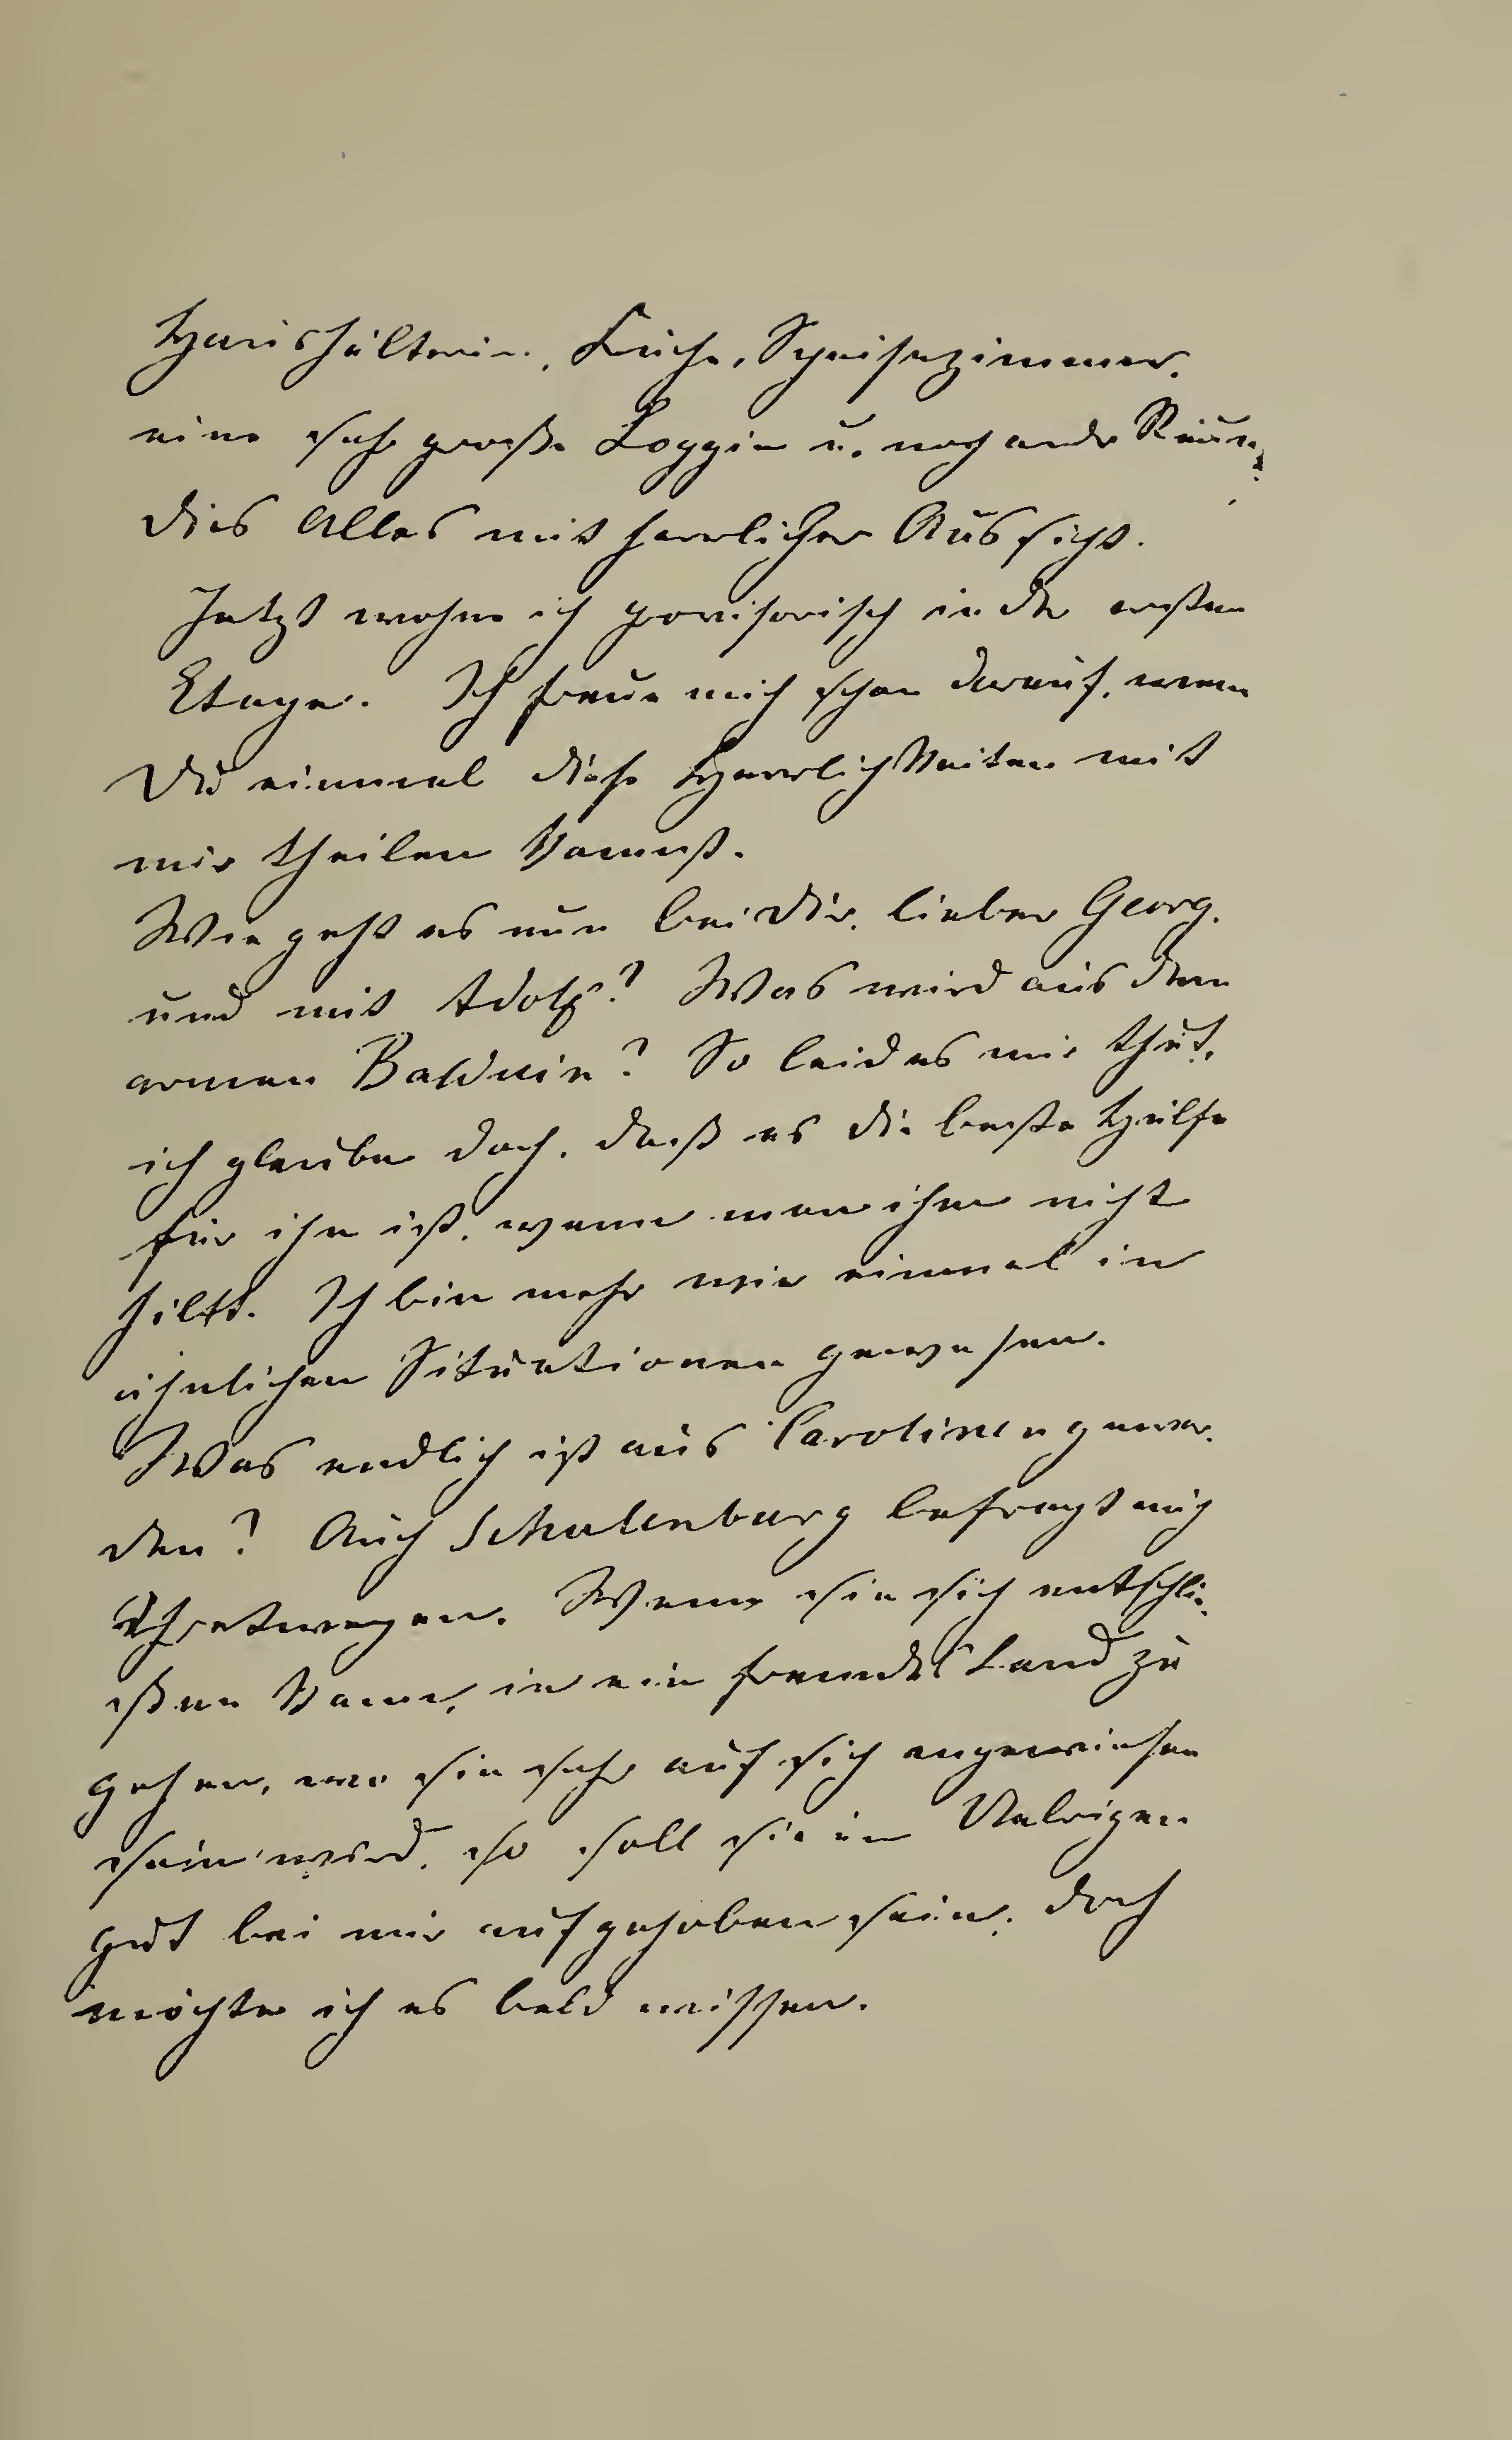 Haushälterin, Küche, Speisezimmer,
eine sehr große Loggia u. noch andr Räume,
dies Alles mit herrlicher Aussicht.
Jetzt wohne ich provisorisch in der ersten
Etage. Ich freue mich schon darauf, wenn
Du einmal diese Herrlichkeiten mit
mir theilen kannst.
Wie geht es nun bei Dir, lieber Georg,
und mit Adolf? Was wird aus dem
armen Balduin? So leid es mir thut,
ich glaube doch, daß es die beste Hülfe
für ihn ist, wenn man ihm nicht
hilft. Ich bin mehr wie einmal in
ähnlichen Situationen gewesen.
Was endlich ist aus Carolinen gewor-
den? Auch Schulenburg befragt mich
Ihretwegen. Wenn sie sich entschli-
eßen kann, in ein fremdes Land zu
gehen, wo sie sehr auf sich angewiesen
sein wird, so soll sie im Uebrigen
gut bei mir aufgehoben sein; doch
möchte ich es bald wissen.